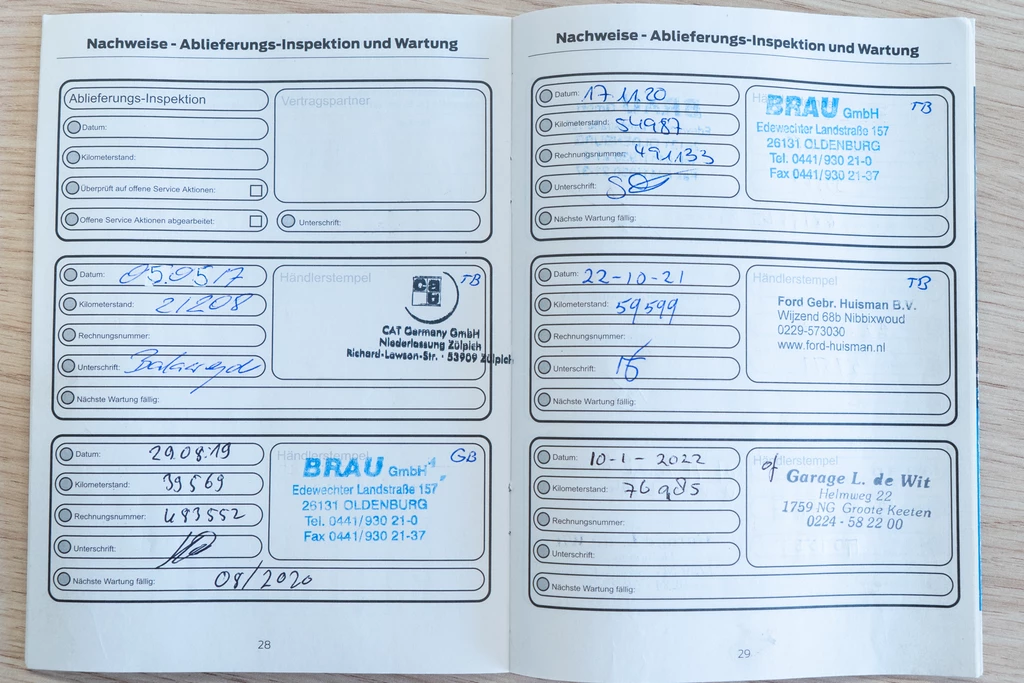 Nachweise - Ablieferungs-Inspektion und Wartung
Ablieferungs-Inspektion
Datum:
Kilometerstand:
Überprüft auf offene Service Aktionen:
Offene Service Aktionen abgearbeitet:
Vertragspartner
Unterschrift:
Datum: 05.05.17
Kilometerstand: 21208
Rechnungsnummer:
Unterschrift:
Nächste Wartung fällig:
Händlerstempel
TB
cat
CAT Germany GmbH
Niederlassung Zülpich
Richard-Lawson-Str. · 53909 Zülpich
Datum: 29.08.19
Kilometerstand: 39569
Rechnungsnummer: 483552
Unterschrift:
Nächste Wartung fällig: 08/2020
Händlerstempel
GB
BRAU GmbH
Edewechter Landstraße 157
26131 OLDENBURG
Tel. 0441/930 21-0
Fax 0441/930 21-37
28
Nachweise - Ablieferungs-Inspektion und Wartung
Datum: 17.11.20
Kilometerstand: 54987
Rechnungsnummer: 491133
Unterschrift:
Nächste Wartung fällig:
TB
BRAU GmbH
Edewechter Landstraße 157
26131 OLDENBURG
Tel. 0441/930 21-0
Fax 0441/930 21-37
Datum: 22-10-21
Kilometerstand: 59599
Rechnungsnummer:
Unterschrift:
Nächste Wartung fällig:
Händlerstempel
TB
Ford Gebr. Huisman B.V.
Wijzend 68b Nibbixwoud
0229-573030
www.ford-huisman.nl
Datum: 10-1-2022
Kilometerstand: 76985
Rechnungsnummer:
Unterschrift:
Nächste Wartung fällig:
Händlerstempel
Garage L. de Wit
Helmweg 22
1759 NG Groote Keeten
0224 - 58 22 00
29